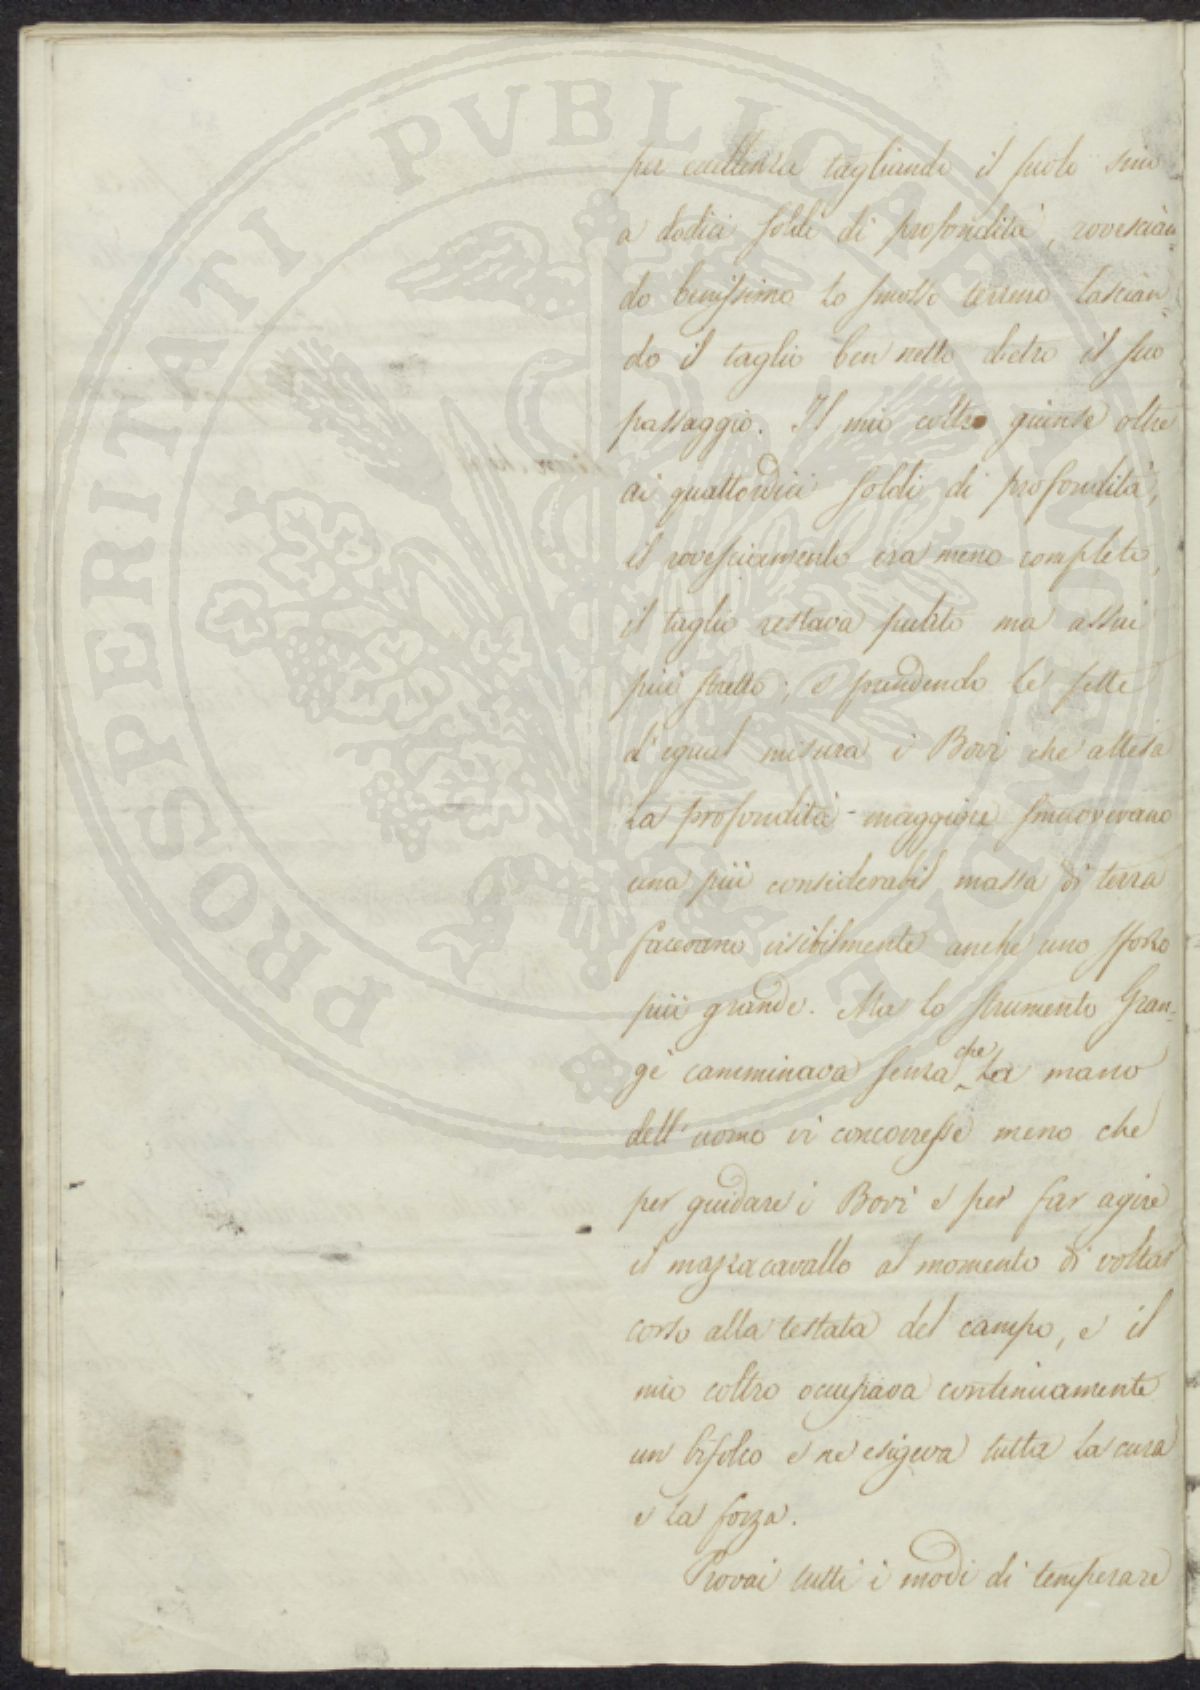 PROSPERITATI PVBLICAE AVGENDAE
per eccellenza tagliando il suolo sino
a dodici soldi di profondità, rovescian=
do benissimo lo smosso terreno lascian=
do il taglio ben netto dietro il suo
passaggio. Il mio coltro giunse oltre
ai quattordici soldi di profondità,
il rovesciamento era meno completo,
il taglio restava pulito ma assai
più stretto; e prendendo le fette
d'egual misura i Bovi che attesa
la profondità maggiore smuovevano
una più considerabil massa di terra
facevano visibilmente anche uno sforzo
più grande. Ma lo strumento Gran=
gè camminava senza che la mano
dell'uomo vi concorresse meno che
per guidare i Bovi e per far agire
il mazzacavallo al momento di voltar
corso alla testata del campo, e il
mio coltro occupava continuamente
un bifolco e ne esigeva tutta la cura
e la forza.
Provai tutti i modi di temperare